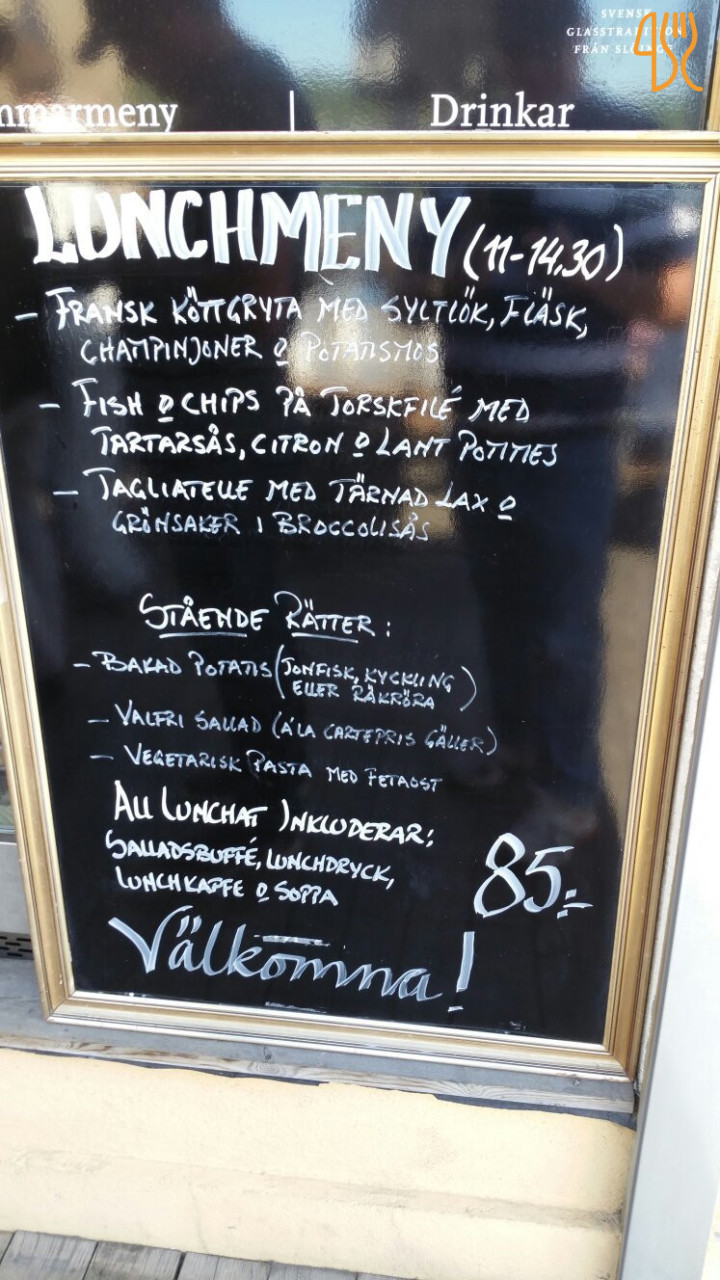 SVENSK
GLASSTRADITION
FRÅN SLÖINGE
mmarmeny | Drinkar
LUNCHMENY (11-14.30)
- FRANSK KÖTTGRYTA MED SYLTLÖK, FLÄSK,
CHAMPINJONER O POTATISMOS
- FISH O CHIPS PÅ TORSKFILÉ MED
TARTARSÅS, CITRON O LANT POMMES
- TAGLIATELLE MED TÄRNAD LAX O
GRÖNSAKER I BROCCOLISÅS
STÅENDE RÄTTER:
- BAKAD POTATIS (TONFISK, KYCKLING
ELLER RÄKRÖRA)
- VALFRI SALLAD (Á'LA CARTEPRIS GÄLLER)
- VEGETARISK PASTA MED FETAOST
ALL LUNCHAT INKLUDERAR:
SALLADSBUFFÉ, LUNCHDRYCK,
LUNCHKAFFE O SOPPA
85:-
Välkomna!